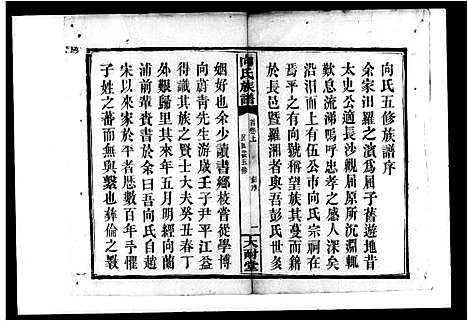 向氏五修族譜序
余家汨羅之濱為屈子舊遊地昔
太史公適長沙觀屈原所沉淵輒
歎息流涕嗚呼忠孝之感人深矣
焉平之間何以稱望族其蔓而籍
沿江而上有伍公市向氏宗祠在
於長邑暨羅湘者與吾彭氏世多
向氏族譜
首卷上
五修
序
一
大耐堂
姻好也余少讀書鄉校嘗從學博
向蔚青先生游歲壬子尹平江益
得識其族之賢士大夫癸丑春丁
外艱歸里其來年五月明經向藝
浦前輩賚書於余曰吾向氏自趙
宋以來家於平者歷數百年不啻
子姓之蕃而無與繫也彝倫之